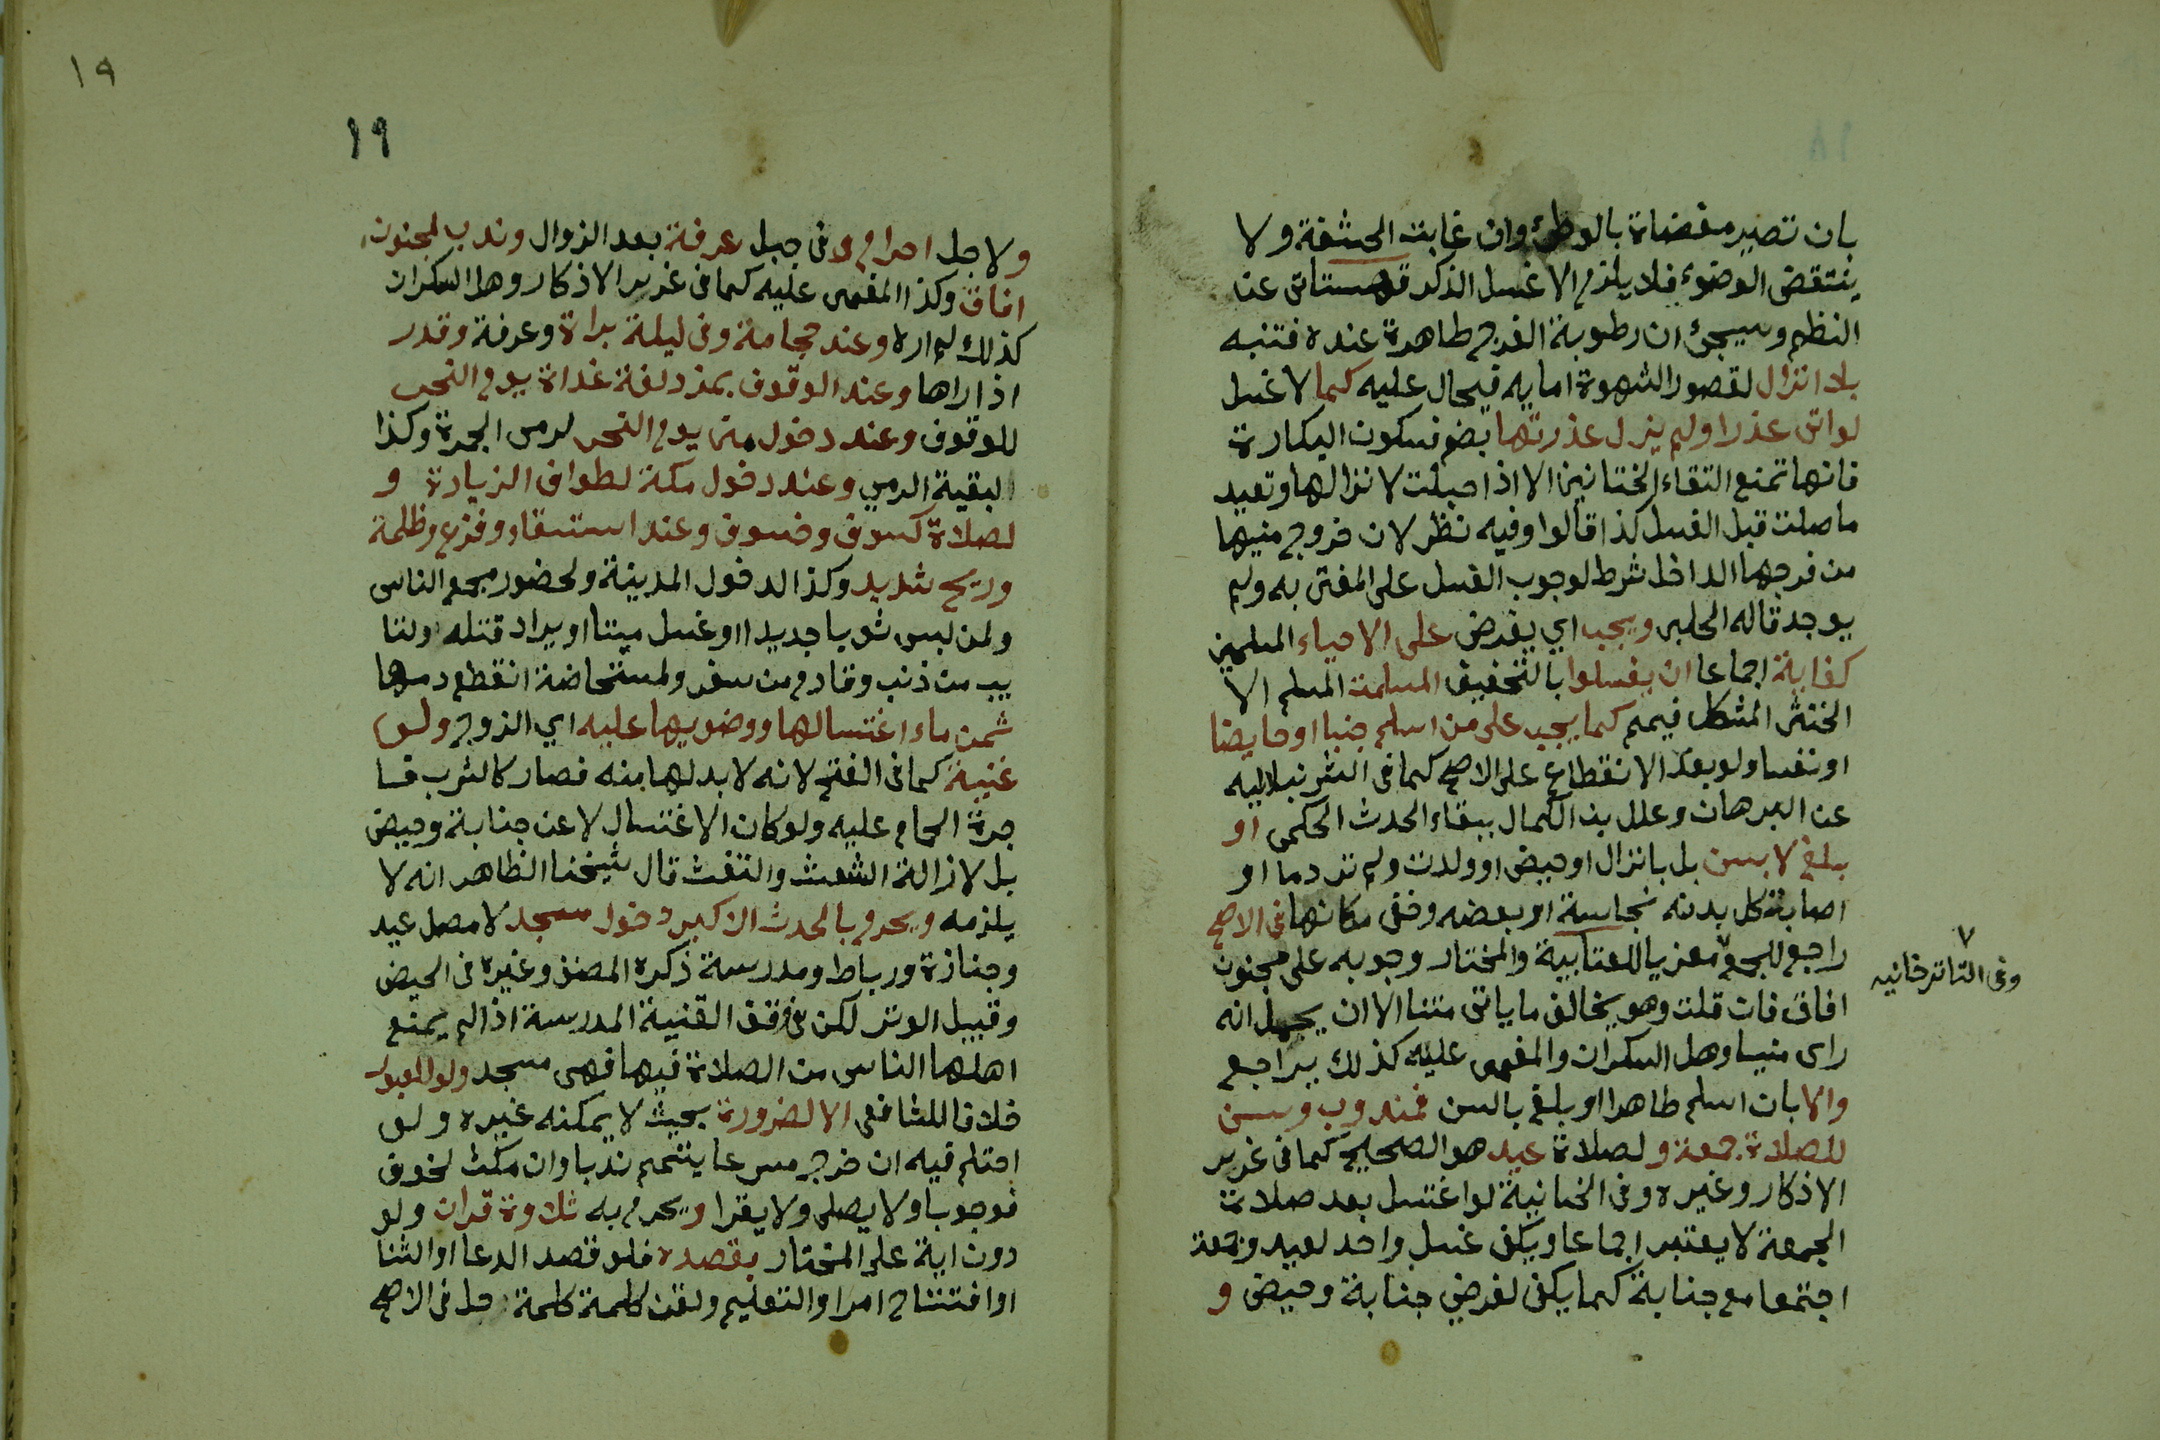 بان تصير مفضاة بالوطئ وان غابت الحشفة ولا
ينتقض الوضوء فلا يلزم الا غسل الذكر قهستاني عن
النظم وسيجئ ان رطوبة الفرج طاهرة عنده فتنبه
بلا انزال لقصور الشهوة اما به فيحال عليه كما لا غسل
لو اتى عذرا ولم يزل عذرتها بضم فسكون البكارة
فانها تمنع التقاء الختانين الا اذا حبلت لانزالها وتعيد
ما صلت قبل الغسل كذا قالوا وفيه نظر لان خروج منيها
من فرجها الداخل شرط لوجوب الغسل على المفتى به ولم
يوجد قاله الحلبي ويجب اي يفرض على الاحياء المسلمين
كفاية اجماعا ان يغسلوا بالتخفيف المسلمة المسلم الا
الخنثى المشكل فييمم كما يجب على من اسلم جنبا او حايضا
او نفسا ولو بعد الانقطاع على الاصح كما في الشرنبلاليه
عن البرهان وعلل بن الكمال ببقاء الحدث الحكمي او
بلغ لا بسن بل بانزال او حيض او ولدت ولم تر دما او
اصابة كل بدنه نجاسة او بعضه وخفى مكانها في الاصح
راجع للجميع ٧ معزيا للعتابية والمختار وجوبه على مجنون
٧
وفى التاترخانيه
افاق فان قلت وهو يخالف ما ياتى متنا الا ان يحمل انه
راى منيا وهل السكران والمغمى عليه كذلك يراجع
والا بان اسلم طاهرا او بلغ بالسن فمندوب وسن
للصلاة جمعة ولصلاة عيد هو الصحيح كما في غرر
الاذكار وغيره وفي الخانية لو اغتسل بعد صلاة
الجمعة لا يعتبر اجماعا ويكفى غسل واحد لعيد وجمعة
اجتمعا مع جنابة كما يكفى لفرضي جنابة وحيض و
١٩
١٩
ولاجل احرام وفى جبل عرفة بعد الزوال وندب لمجنون
افاق وكذا المغمى عليه كما في غرر الاذكار وهل السكران
كذلك لم اره وعند حجامة وفى ليلة براة وعرفة وقدر
اذا راها وعند الوقوف بمزدلفة غداة يوم النحر
للوقوف وعند دخول منى يوم النحر لرمى الجمرة وكذا
لبقية الرمي وعند دخول مكة لطواف الزيارة و
لصلاة كسوف وخسوف وعند استسقاء وفزع وظلمة
وريح شديد وكذا لدخول المدينة ولحضور مجمع الناس
ولمن لبس ثوبا جديدا او غسل ميتا او يراد قتله ولتا
يب من ذنب وقادم من سفر ولمستحاضة انقطع دمها
ثمن ماء اغتسالها ووضويها عليه اي الزوج ولو
غنية كما في الفتح لانه لا بد لها منه فصار كالشرب فا
جرة الحمام عليه ولو كان الاغتسال لا عن جنابة وحيض
بل لازالة الشعث والتفث قال شيخنا الظاهر انه لا
يلزمه ويحرم بالحدث الاكبر دخول مسجد لا مصلى عيد
وجنازة ورباط ومدرسة ذكره المصنف وغيره في الحيض
وقبيل الوتر لكن في وقف القنية المدرسة اذا لم يمنع
اهلها الناس من الصلاة فيها فهى مسجد ولو للعبور
خلافا للشافعى الا لضرورة بحيث لا يمكنه غيره ولو
احتلم فيه ان خرج مسرعا يتيمم ندبا وان مكث لخوف
فوجوبا ولا يصلى ولا يقرا ويحرم به تلاوة قران ولو
دون اية على المختار بقصده فلو قصد الدعا او الثنا
او افتتاح امر او التعليم ولقن كلمة كلمة حل في الاصح